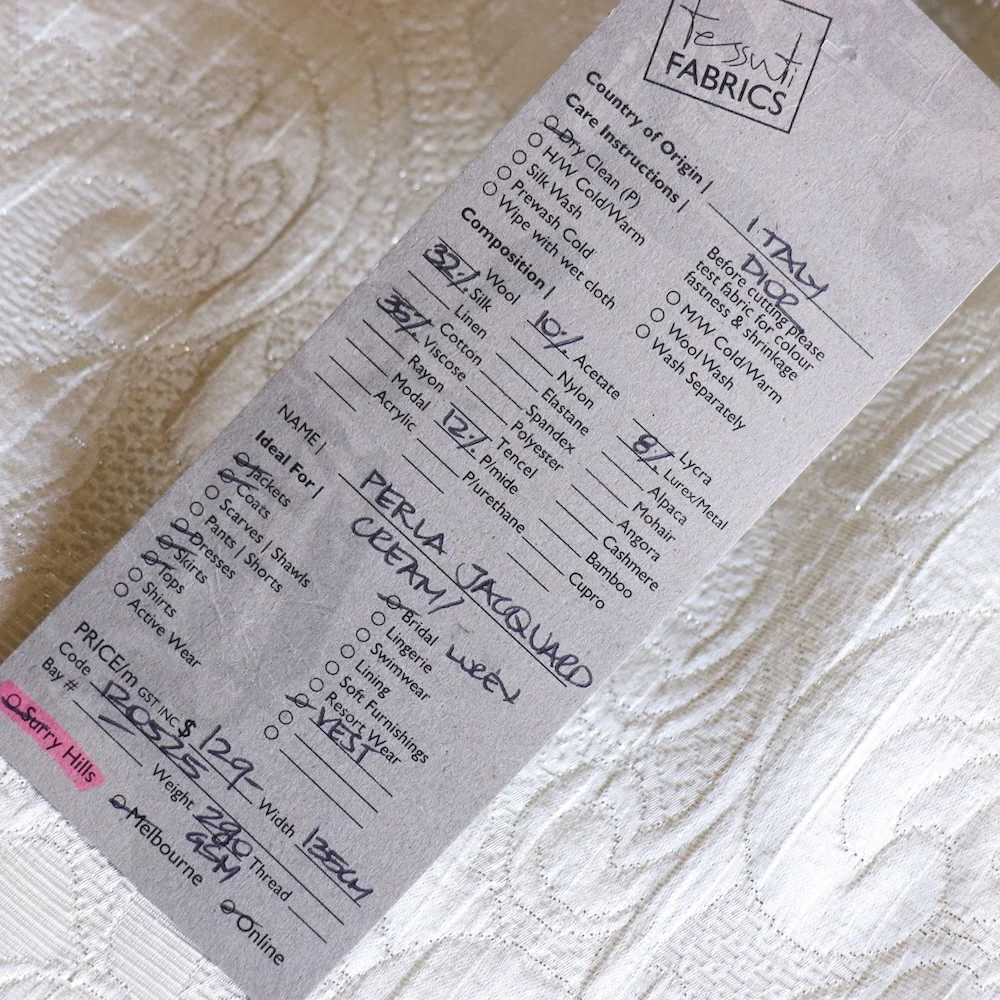 tessuti
FABRICS
Country of Origin | ITALY
DIOR
Care Instructions |
Dry Clean (P)
H/W Cold/Warm
Silk Wash
Prewash Cold
Wipe with wet cloth
Before cutting please
test fabric for colour
fastness & shrinkage
M/W Cold/Warm
Wool Wash
Wash Separately
Composition |
Wool
32% Silk
Linen
Cotton
35% Viscose
Rayon
Modal
Acrylic
10% Acetate
Nylon
Elastane
Spandex
Polyester
Tencel
12% P/mide
P/urethane
Lycra
8% Lurex/Metal
Alpaca
Mohair
Angora
Cashmere
Bamboo
Cupro
NAME | PERLA JACQUARD
CREAM/ LUREX
Ideal For |
Jackets
Coats
Scarves | Shawls
Pants | Shorts
Dresses
Skirts
Tops
Shirts
Active Wear
Bridal
Lingerie
Swimwear
Lining
Soft Furnishings
Resort Wear
VEST
PRICE/m GST INC. $ 129- Width 135cm
Code 120525 Weight 290 GSM Thread
Bay #
Surry Hills
Melbourne
Online